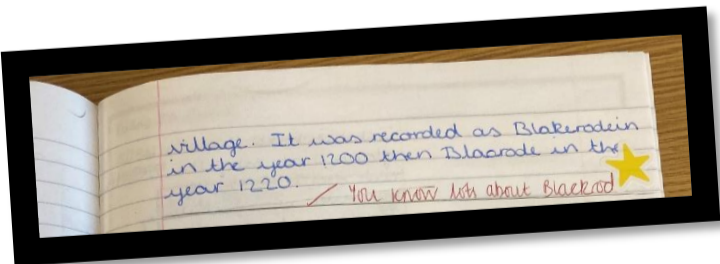 village. It was recorded as Blakerodein
in the year 1200 then Blacrode in the
year 1220.
You know lots about Blackrod